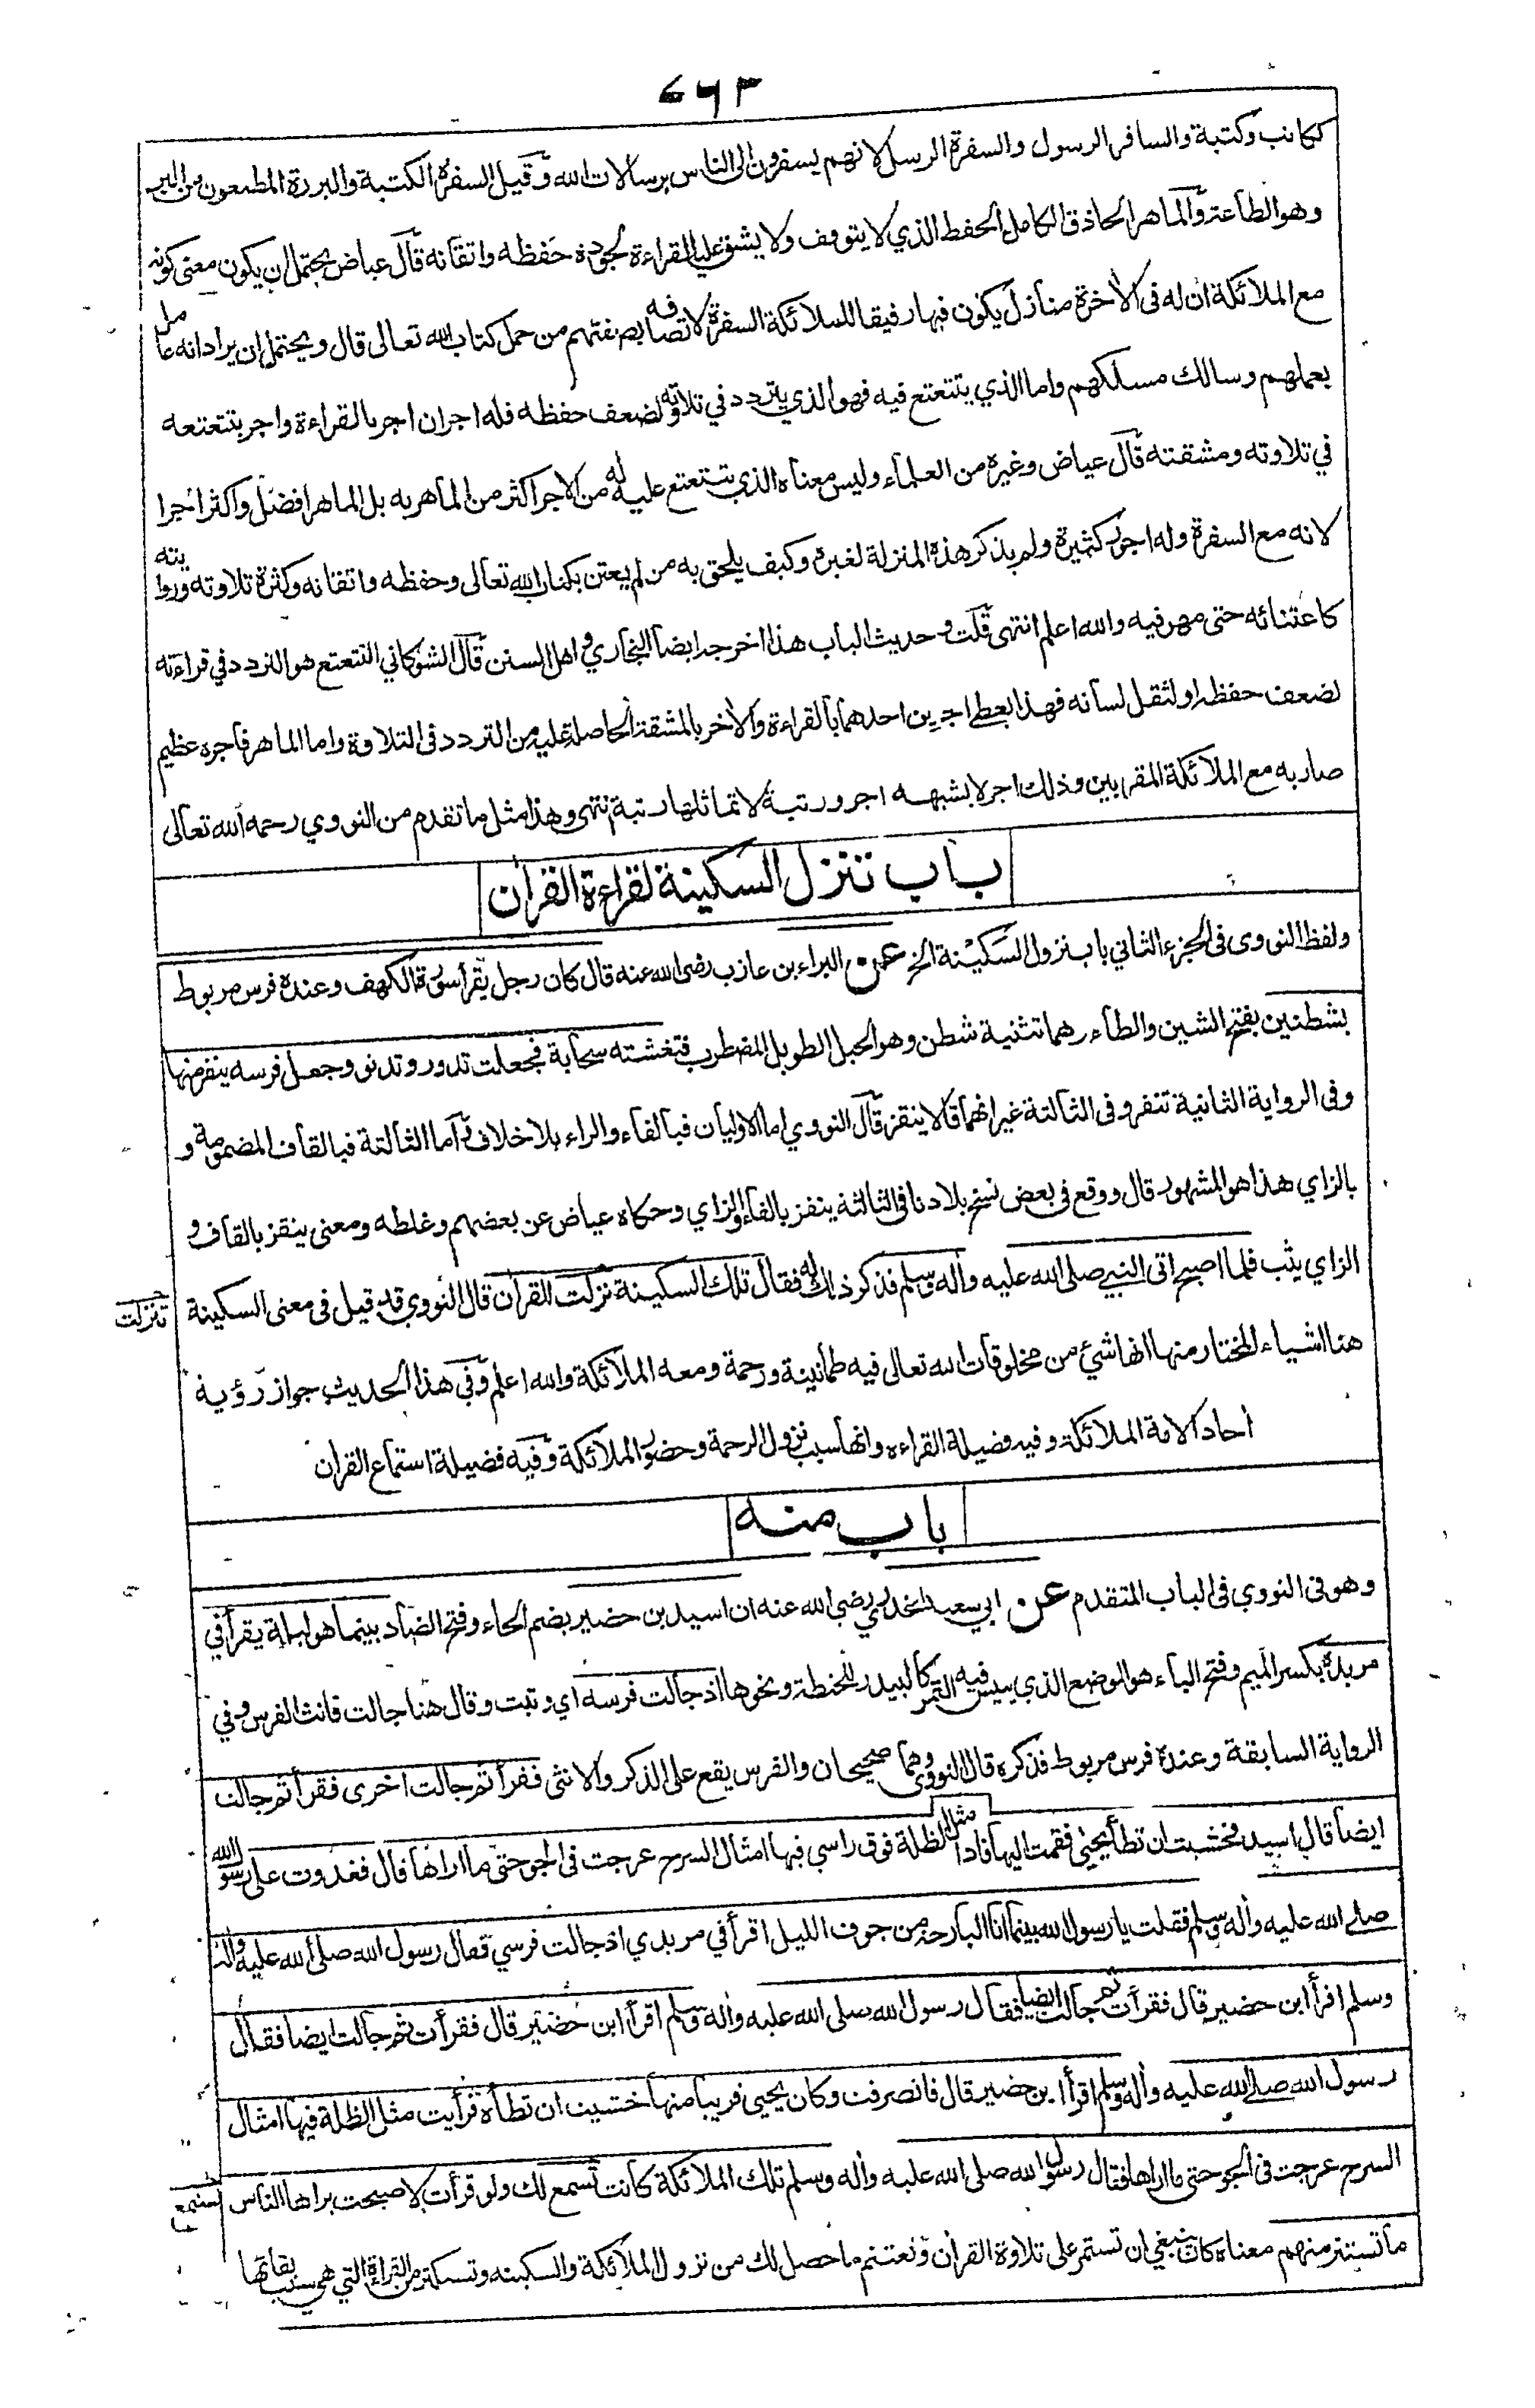 ٦٦٣
ككاتب وكتبة والسافر الرسول والسفرة الرسل لانهم يسفرون الى الناس برسالات الله وقيل السفرة الكتبة والبررة المطيعون من البر
وهو الطاعة والماهر الحاذق الكامل الحفظ الذي لا يتوقف ولا يشق عليه القراءة لجودة حفظه واتقانه قال عياض يحتمل ان يكون معنى كونه
مع الملائكة ان له في الاخرة منازل يكون فيها رفيقا للملائكة السفرة لاتصافه بصفتهم من حمل كتاب الله تعالى قال ويحتمل ان يراد انه عامل
بعملهم وسالك مسلكهم واما الذي يتتعتع فيه فهو الذي يتردد في تلاوته لضعف حفظه فله اجران اجر بالقراءة واجر بتتعتعه
في تلاوته ومشقته قال عياض وغيره من العلماء وليس معناه الذي يتتعتع عليه له من الاجر اكثر من الماهر به بل الماهر افضل واكثر اجرا
لانه مع السفرة وله اجور كثيرة ولم يذكر هذه المنزلة لغيره وكيف يلحق به من لم يعتن بكتاب الله تعالى وحفظه واتقانه وكثرة تلاوته وروايته
كاعتنائه حتى مهر فيه والله اعلم انتهى قلت وحديث الباب هذا اخرجه ايضا البخاري واهل السنن قال الشوكاني التتعتع هو التردد في قراءته
لضعف حفظه او لثقل لسانه فهذا يعطى اجرين احدهما بالقراءة والاخر بالمشقة الحاصلة عليه من التردد في التلاوة واما الماهر فاجره عظيم
صار به مع الملائكة المقربين وذلك اجر لا يشبهه اجر ورتبة لا تماثلها رتبة انتهى وهذا مثل ما تقدم من النووي رحمه الله تعالى
باب تنزل السكينة لقراءة القران
ولفظ النووى فى الجزء الثاني باب نزول السكينة الخ عن البراء بن عازب رضى الله عنه قال كان رجل يقرأ سورة الكهف وعنده فرس مربوط
بشطنين بفتح الشين والطاء وهما تثنية شطن وهو الحبل الطويل المضطرب فتغشته سحابة فجعلت تدور وتدنو وجعل فرسه ينفر منها
وفى الرواية الثانية تنفر وفى الثالثة غير انهما قالا ينقز قال النووي اما الاوليان فبالفاء والراء بلا خلاف واما الثالثة فبالقاف المضمومة و
بالزاي هذا هو المشهور قال ووقع فى بعض نسخ بلادنا فى الثالثة ينفز بالفاء والزاي وحكاه عياض عن بعضهم وغلطه ومعنى ينقز بالقاف و
الزاي يثب فلما اصبح اتى النبي صلى الله عليه واله وسلم فذكر ذلك له فقال تلك السكينة نزلت للقران قال النووي قد قيل فى معنى السكينة
تنزلت
هنا اشياء المختار منها انها شئ من مخلوقات الله تعالى فيه طمانينة ورحمة ومعه الملائكة والله اعلم وفي هذا الحديث جواز رؤية
احاد الامة الملائكة وفيه فضيلة القراءه وانها سبب نزول الرحمة وحضور الملائكة وفيه فضيلة استماع القران
باب منه
وهو فى النووي فى الباب المتقدم عن ابي سعيد الخدري رضي الله عنه ان اسيد بن حضير بضم الحاء وفتح الضاد بينما هو ليلة يقرأ في
مربده بكسر الميم وفتح الباء هو الموضع الذي ييبس فيه التمر كالبيدر للحنطة ونحوها اذ جالت فرسه اي وثبت وقال هنا جالت فانث الفرس وفي
الرواية السابقة وعنده فرس مربوط فذكره قال النووى وهما صحيحان والفرس يقع على الذكر والانثى فقرأ ثم جالت اخرى فقرأ ثم جالت
ايضا قال اسيد فخشيت ان تطأ يحيى فقمت اليها فاذا مثل الظلة فوق راسي فيها امثال السرج عرجت فى الجو حتى ما اراها قال فغدوت على رسول الله
صلى الله عليه واله وسلم فقلت يا رسول الله بينما انا البارحة من جوف الليل اقرأ في مربدي اذ جالت فرسي فقال رسول الله صلى الله عليه واله
وسلم اقرأ ابن حضير قال فقرأت ثم جالت ايضا فقال رسول الله صلى الله عليه واله وسلم اقرأ ابن حضير قال فقرأت ثم جالت ايضا فقال
رسول الله صلى الله عليه واله وسلم اقرأ ابن حضير قال فانصرفت وكان يحيى قريبا منها خشيت ان تطأه فرأيت مثل الظلة فيها امثال
السرج عرجت فى الجو حتى ما اراها فقال رسول الله صلى الله عليه واله وسلم تلك الملائكة كانت تسمع لك ولو قرأت لاصبحت يراها الناس
تستمع
ما تستتر منهم معناه كان ينبغي ان تستمر على تلاوة القران وتغتنم ما حصل لك من نزول الملائكة والسكينة وتستكثر من القراءة التي هي سبب بقائها